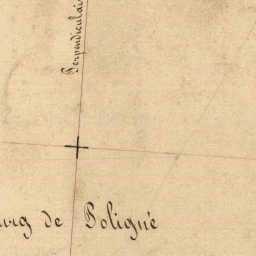 Perpendiculai
urg de Poligné